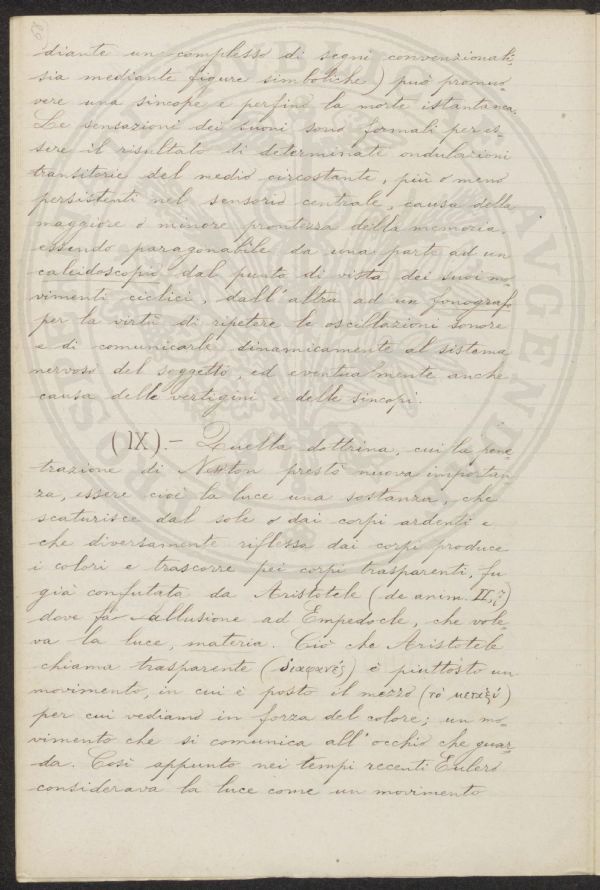 diante un complesso di segni convenzionali,
sia mediante figure simboliche) può promuo-
vere una sincope e perfino la morte istantanea.
Le sensazioni dei suoni sono formali per es-
sere il risultato di determinate ondulazioni
transitorie del medio circostante, più o meno
persistenti nel sensorio centrale, causa della
maggiore o minore prontezza della memoria,
essendo paragonabile da una parte ad un
caleidoscopio dal punto di vista dei suoi mo-
vimenti ciclici, dall'altra ad un fonografo
per la virtù di ripetere le oscillazioni sonore
e di comunicarle dinamicamente al sistema
nervoso del soggetto, ed eventualmente anche
causa delle vertigini e delle sincopi.
(IX).- Quella dottrina, cui la pene-
trazione di Newton prestò nuova importan-
za, essere cioè la luce una sostanza, che
scaturisce dal sole o dai corpi ardenti e
che diversamente riflessa dai corpi produce
i colori e trascorre pei corpi trasparenti, fu
già confutata da Aristotele (de anim. II, 7)
dove fa allusione ad Empedocle, che vole-
va la luce, materia. Ciò che Aristotele
chiama trasparente (διαφανές) è piuttosto un
movimento, in cui è posto il mezzo (τὸ μεταξύ)
per cui vediamo in forza del colore; un mo-
vimento che si comunica all'occhio che guar-
da. Così appunto nei tempi recenti Eulero
considerava la luce come un movimento